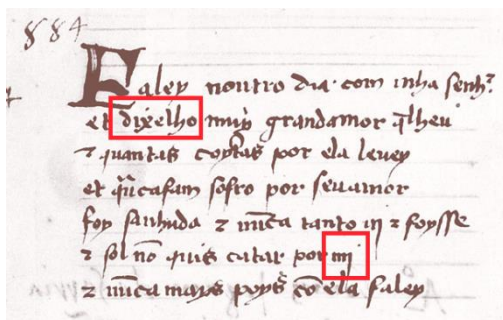 884
Faley noutro dia com mha senhr̃
et dixelho muỹ grandamor q̃lheu
τ quantas coytas por ela levey
et q̃ncafam sofro por seu amor
foy sanhuda τ nũca tanto m τ foysse
τ sol nõ quis catar por mj
τ nũca mays poys cõ ela faley